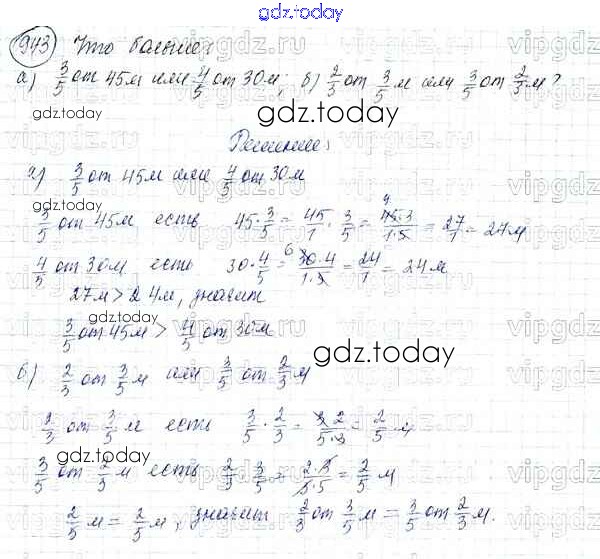 gdz.today
943 Что больше:
а) 3/5 от 45 м или 4/5 от 30 м; б) 2/3 от 3/5 м или 3/5 от 2/3 м?
gdz.today
Решение:
а) 3/5 от 45 м или 4/5 от 30 м
gdz.today
3/5 от 45 м есть 45 · 3/5 = 45/1 · 3/5 = 45·3/1·5 = 27/1 = 27 м
4/5 от 30 м есть 30 · 4/5 = 30·4/1·5 = 24/1 = 24 м
27 м > 24 м, значит
3/5 от 45 м > 4/5 от 30 м
gdz.today
б) 2/3 от 3/5 м или 3/5 от 2/3 м
2/3 от 3/5 м есть 3/5 · 2/3 = 3·2/5·3 = 2/5 м
gdz.today
3/5 от 2/3 м есть 2/3 · 3/5 = 2·3/3·5 = 2/5 м
2/5 м = 2/5 м, значит 2/3 от 3/5 м = 3/5 от 2/3 м.
gdz.today